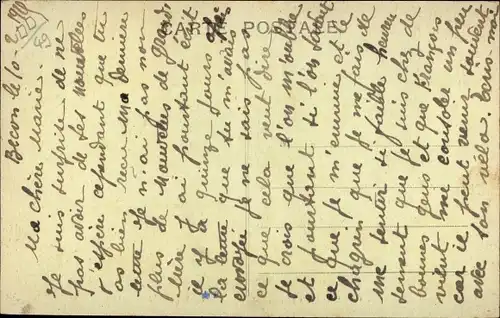 CARTE POSTALE
100
49
Ma chère Marie
Je suis surprise de ne
pas avoir de tes nouvelles
j'espère cependant que tu
as bien reçu ma dernière
lettre Je n'ai pas non
plus de nouvelles de grand
Mère J'ai pourtant écrit
il y a quinze jours
La lettre que tu m'avais
envoyée Je ne sais pas
ce que cela veut dire
Je crois que l'on m'oublie
et pourtant si l'on savait
ce que je m'ennuie et le
chagrin que je me fais de
me sentir si faible heureu
sement que je suis chez de
bonnes gens et que François
vient me consoler un peu
car il peut venir souvent
avec son vélo